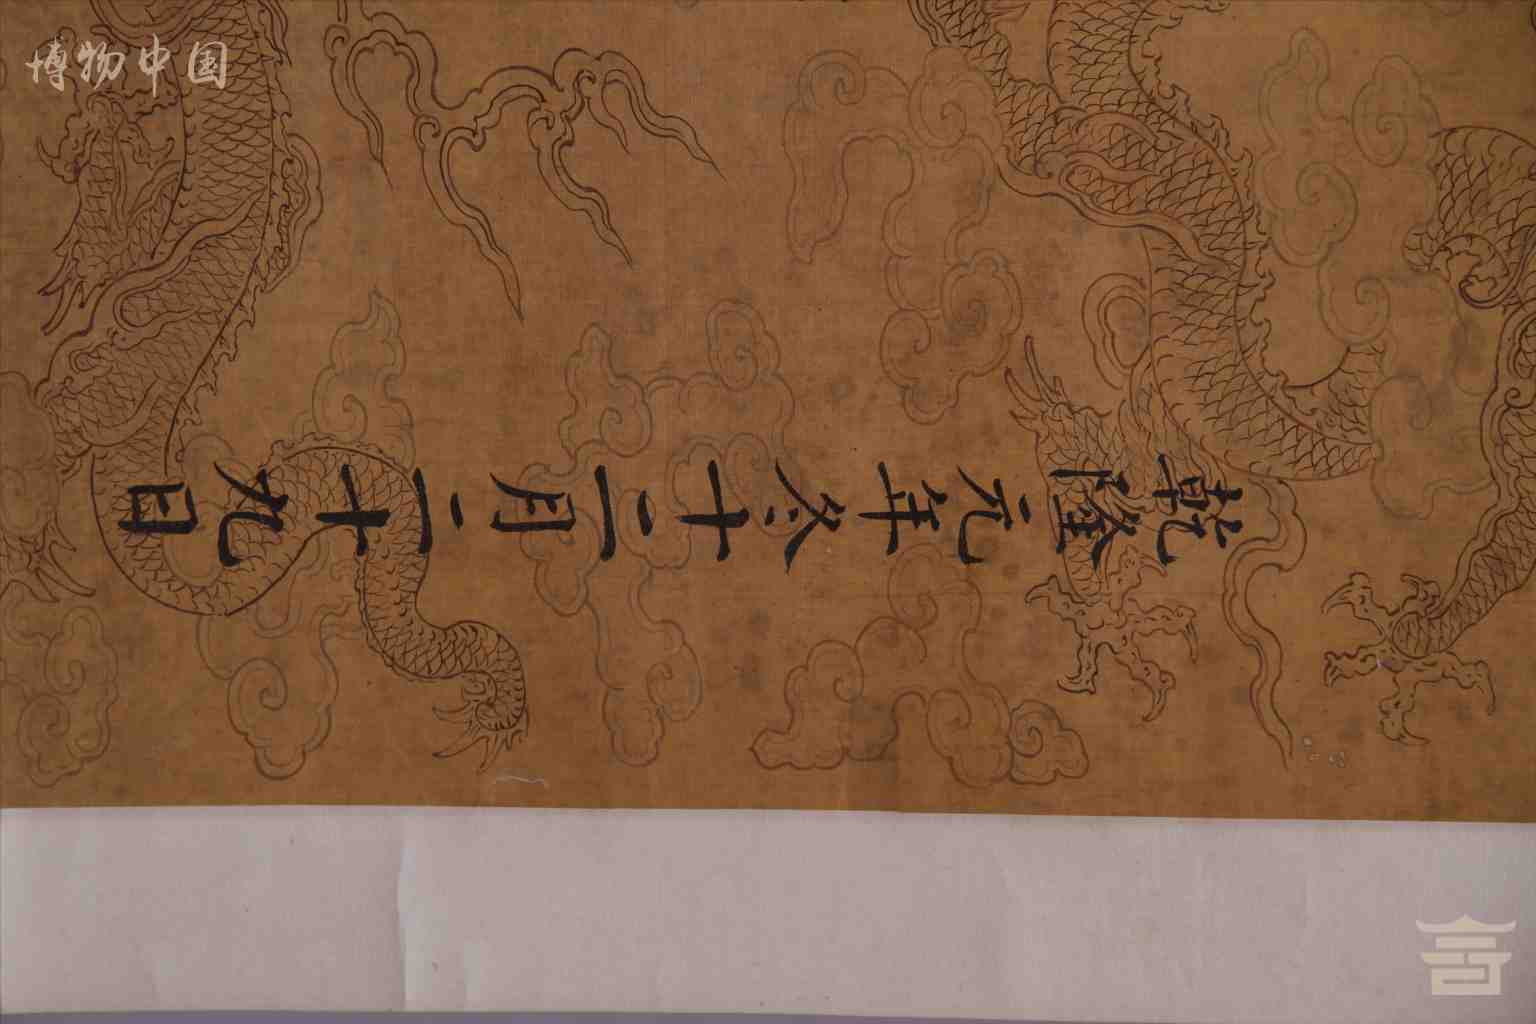 博物中国
乾隆元年冬十二月二十九日